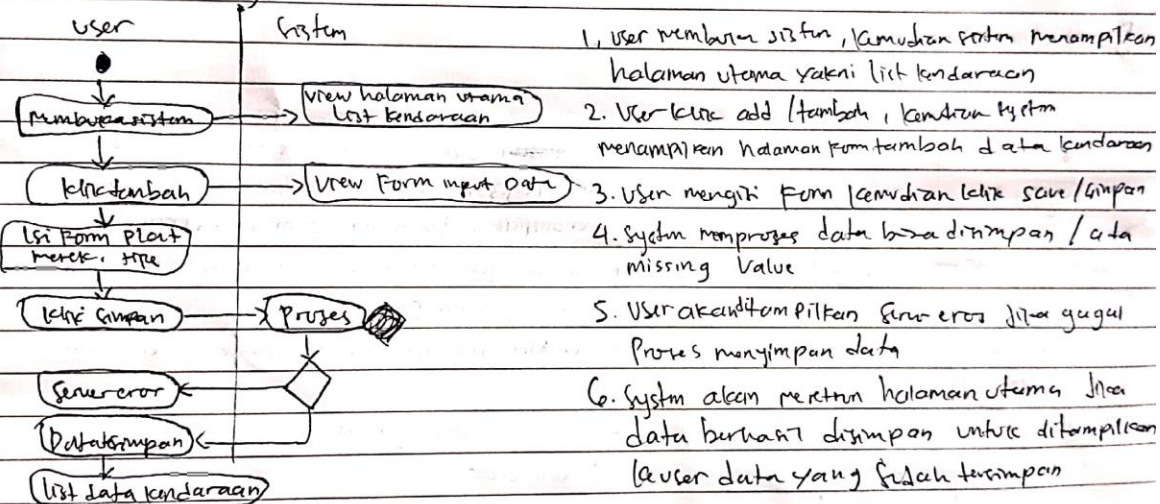 user
Sistem
membuka sistem
view halaman utama
list kendaraan
klik tambah
view Form input Data
Isi Form Plat
merek, tipe
klik simpan
Proses
Server eror
Data tersimpan
list data kendaraan
1. user membuka sistem, kemudian sistem menampilkan
halaman utama yakni list kendaraan
2. User klik add / tambah, kemudian system
menampilkan halaman form tambah data kendaraan
3. User mengisi Form kemudian klik save / simpan
4. System memproses data bisa disimpan / ada
missing value
5. User akan ditampilkan server eror jika gagal
Proses menyimpan data
6. System akan halaman utama jika
data berhasil disimpan untuk ditampilkan
ke user data yang sudah tersimpan